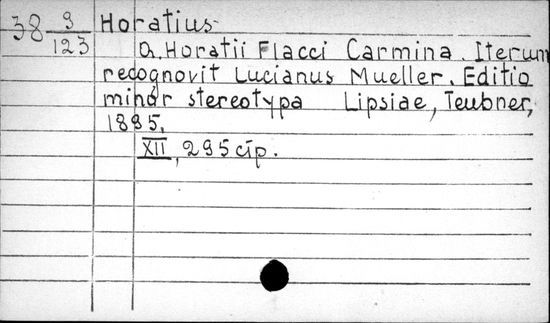 38 9/123 Horatius
Q. Horatii Flacci Carmina. Iterum
recognovit Lucianus Mueller. Editio
minor stereotypa Lipsiae, Teubner,
1895.
XII, 295 стр.